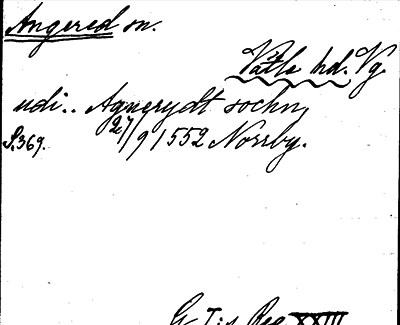 Angered sn.
Vättle hd. Vg.
udi.. Agnerydt sochn
27/9 1552 Norrby.
S.369.
G I:s Reg XXIII